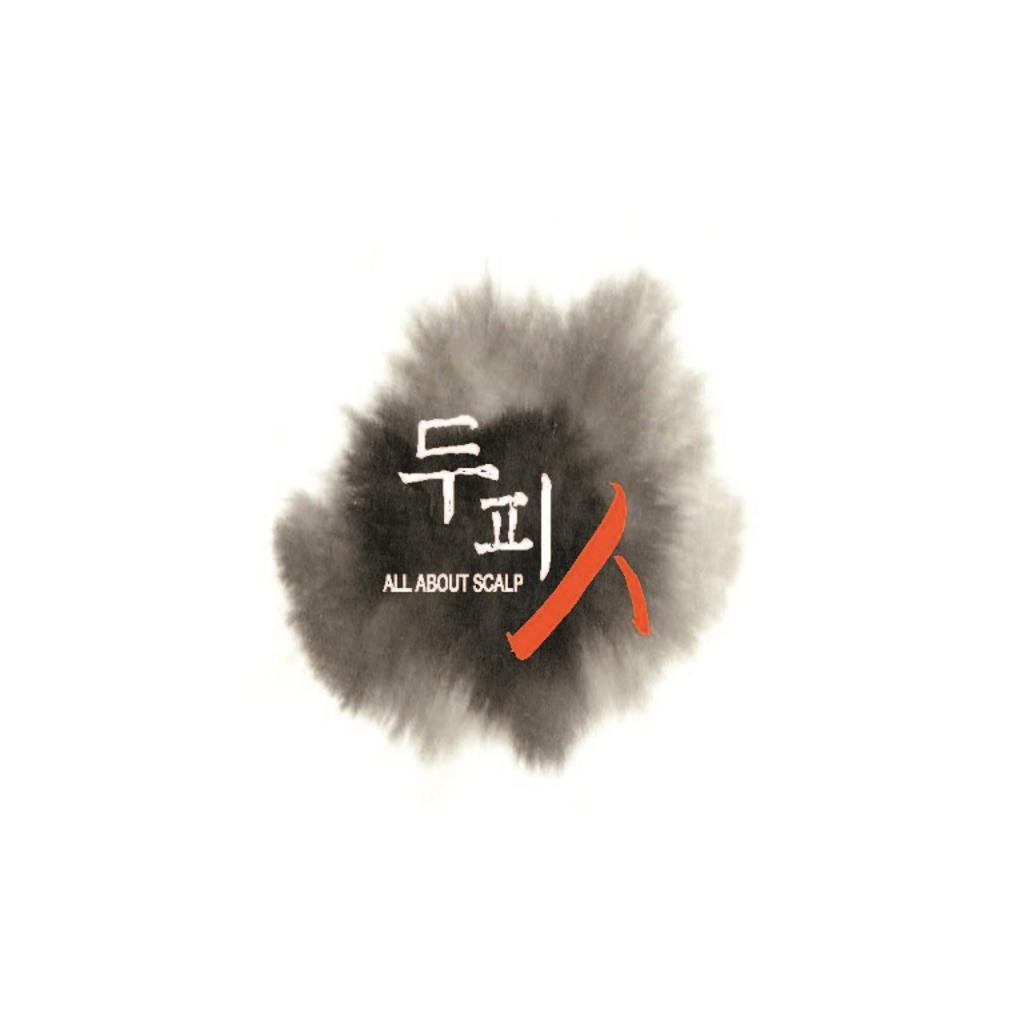 두피人
ALL ABOUT SCALP